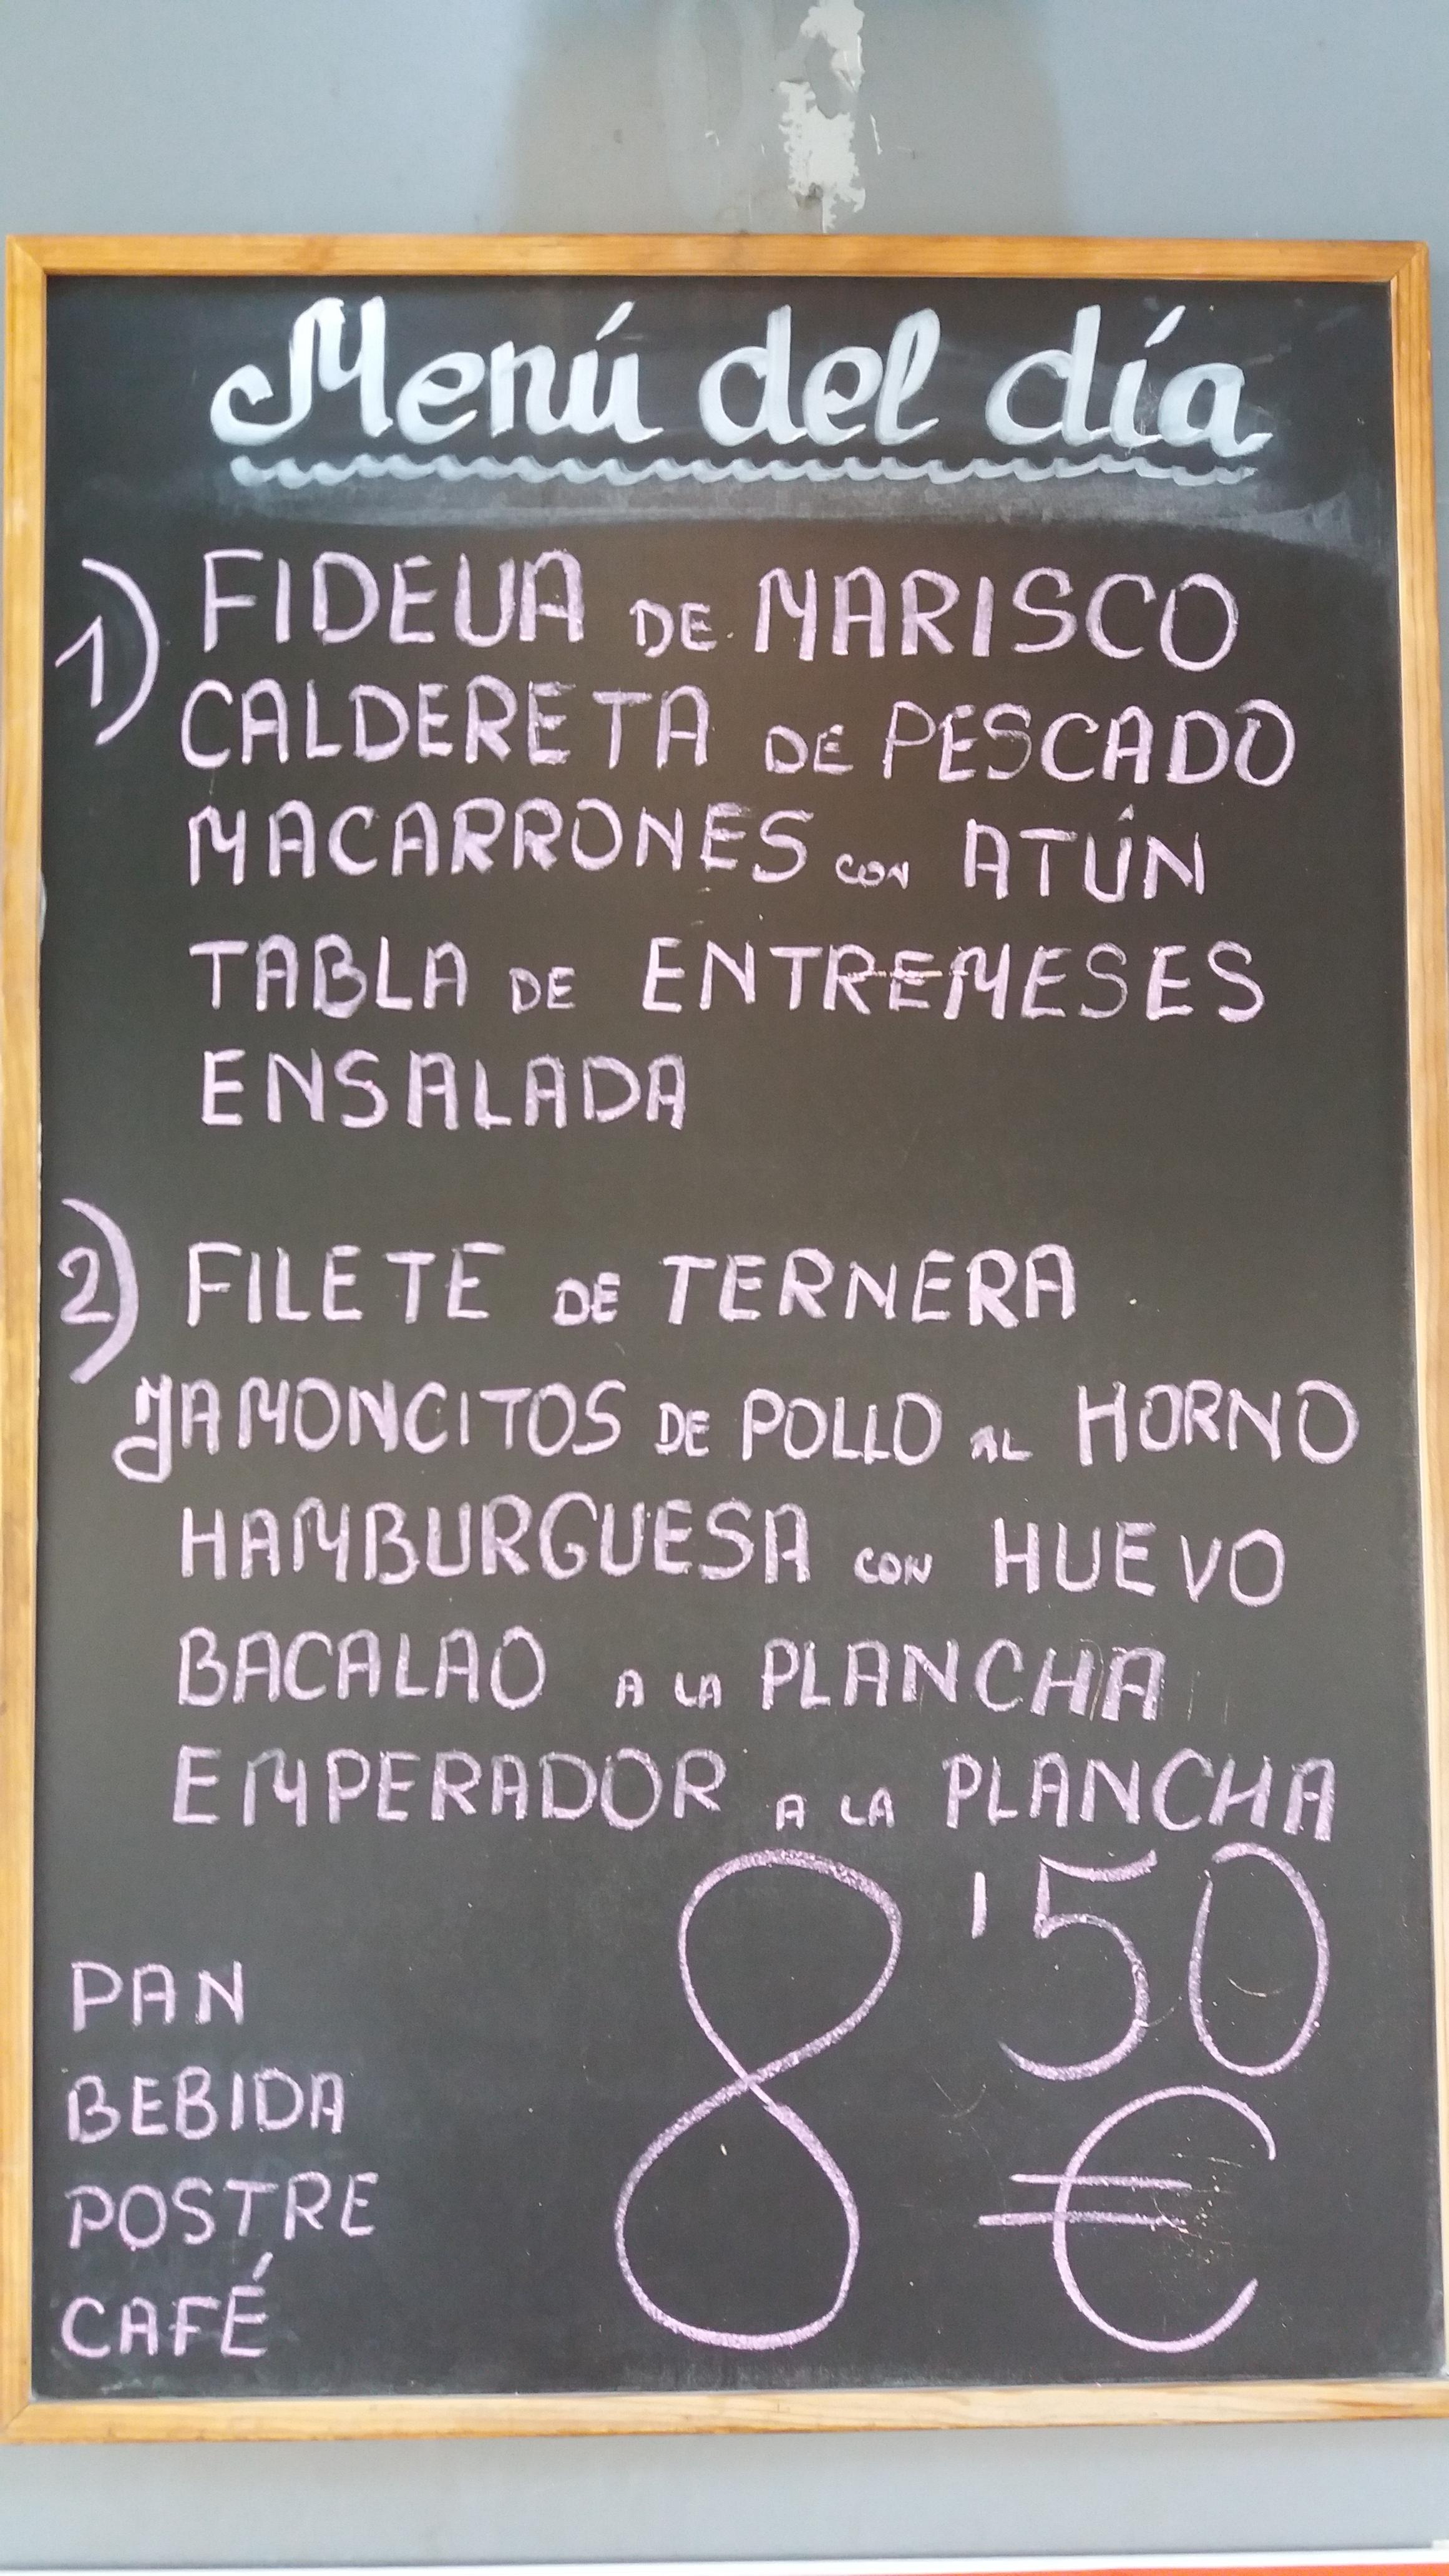 Menú del día
1) FIDEUA DE MARISCO
CALDERETA DE PESCADO
MACARRONES CON ATÚN
TABLA DE ENTREMESES
ENSALADA
2) FILETE DE TERNERA
JAMONCITOS DE POLLO AL HORNO
HAMBURGUESA CON HUEVO
BACALAO A LA PLANCHA
EMPERADOR A LA PLANCHA
8'50 €
PAN
BEBIDA
POSTRE
CAFÉ